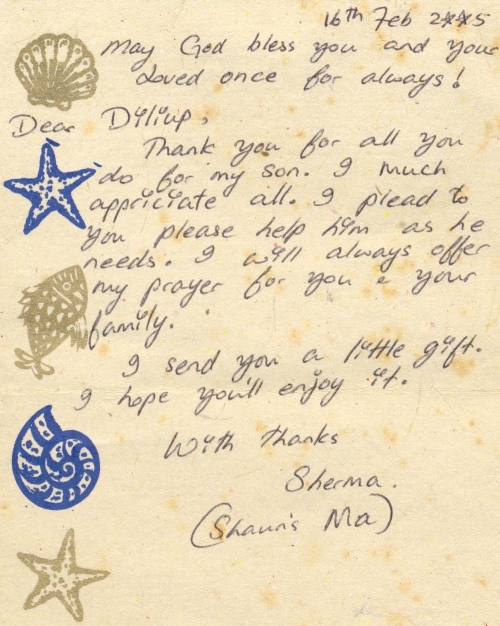 16th Feb 2**5
May God bless you and your
Loved once for always!
Dear Diliup,
Thank you for all you
do for my son. I much
appriciate all. I plead to
you please help him as he
needs. I will always offer
my prayer for you & your
family.
I send you a little gift.
I hope you'll enjoy it.
With thanks
Sherma.
(Shaun's Ma)